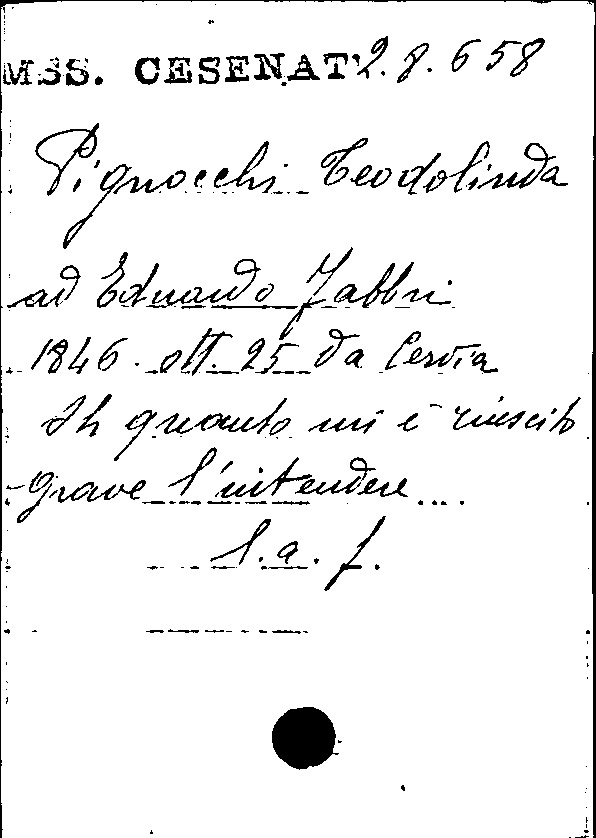 MSS. CESENAT. 2.8.658
Pignocchi Teodolinda
ad Eduardo Fabbri
1846. ott. 25 da Cervia
Ih quanto mi è riescito
grave l'intendere....
l. a. f.